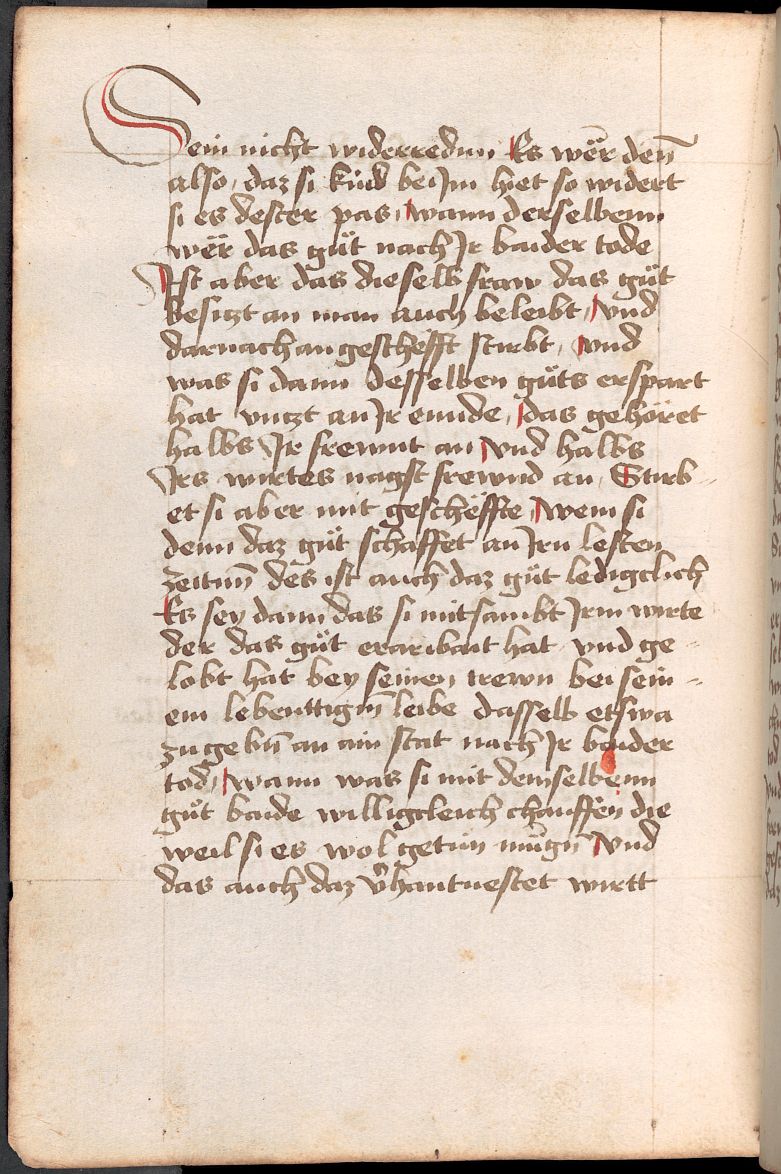 Sein nicht widerrednn Es wër deñ
also, daz si kind bei Jm hiet so widert
si es dester pas, wann derselbenn
wër das gůt nach Jr baider tode
Ist aber das dieselb fraw das gůt
besitzt an man auch beleibt, Vnd
darnach an geschëfft stirbt, vnd
was si dann desselben gůts erspart
hat vntzt an Jr ennde, das gehöret
halbs Jr frewnt an Vnd halbs
Jrs wirtes nagst frewnd an, Stirb-
et si aber mit geschëffte, wem si
denn daz gůt schaffet an Jrn lesten
zeitnn des ist auch daz gůt ledigclich
Es sey dann das si mitsambt Jrm wirte
der das gůt eraribait hat vnd ge-
lobt hat bey seinen trewn bei sein-
em lebenttigñ leibe dasselb etswa
zugebñ an ain stat nach Jr baider
tod, wann was si mit demselbenn
gůt baide willigcleich chauffen die
weil si es wol getůn můgñ Vnd
das auch daz v̉hantuestet wirtt